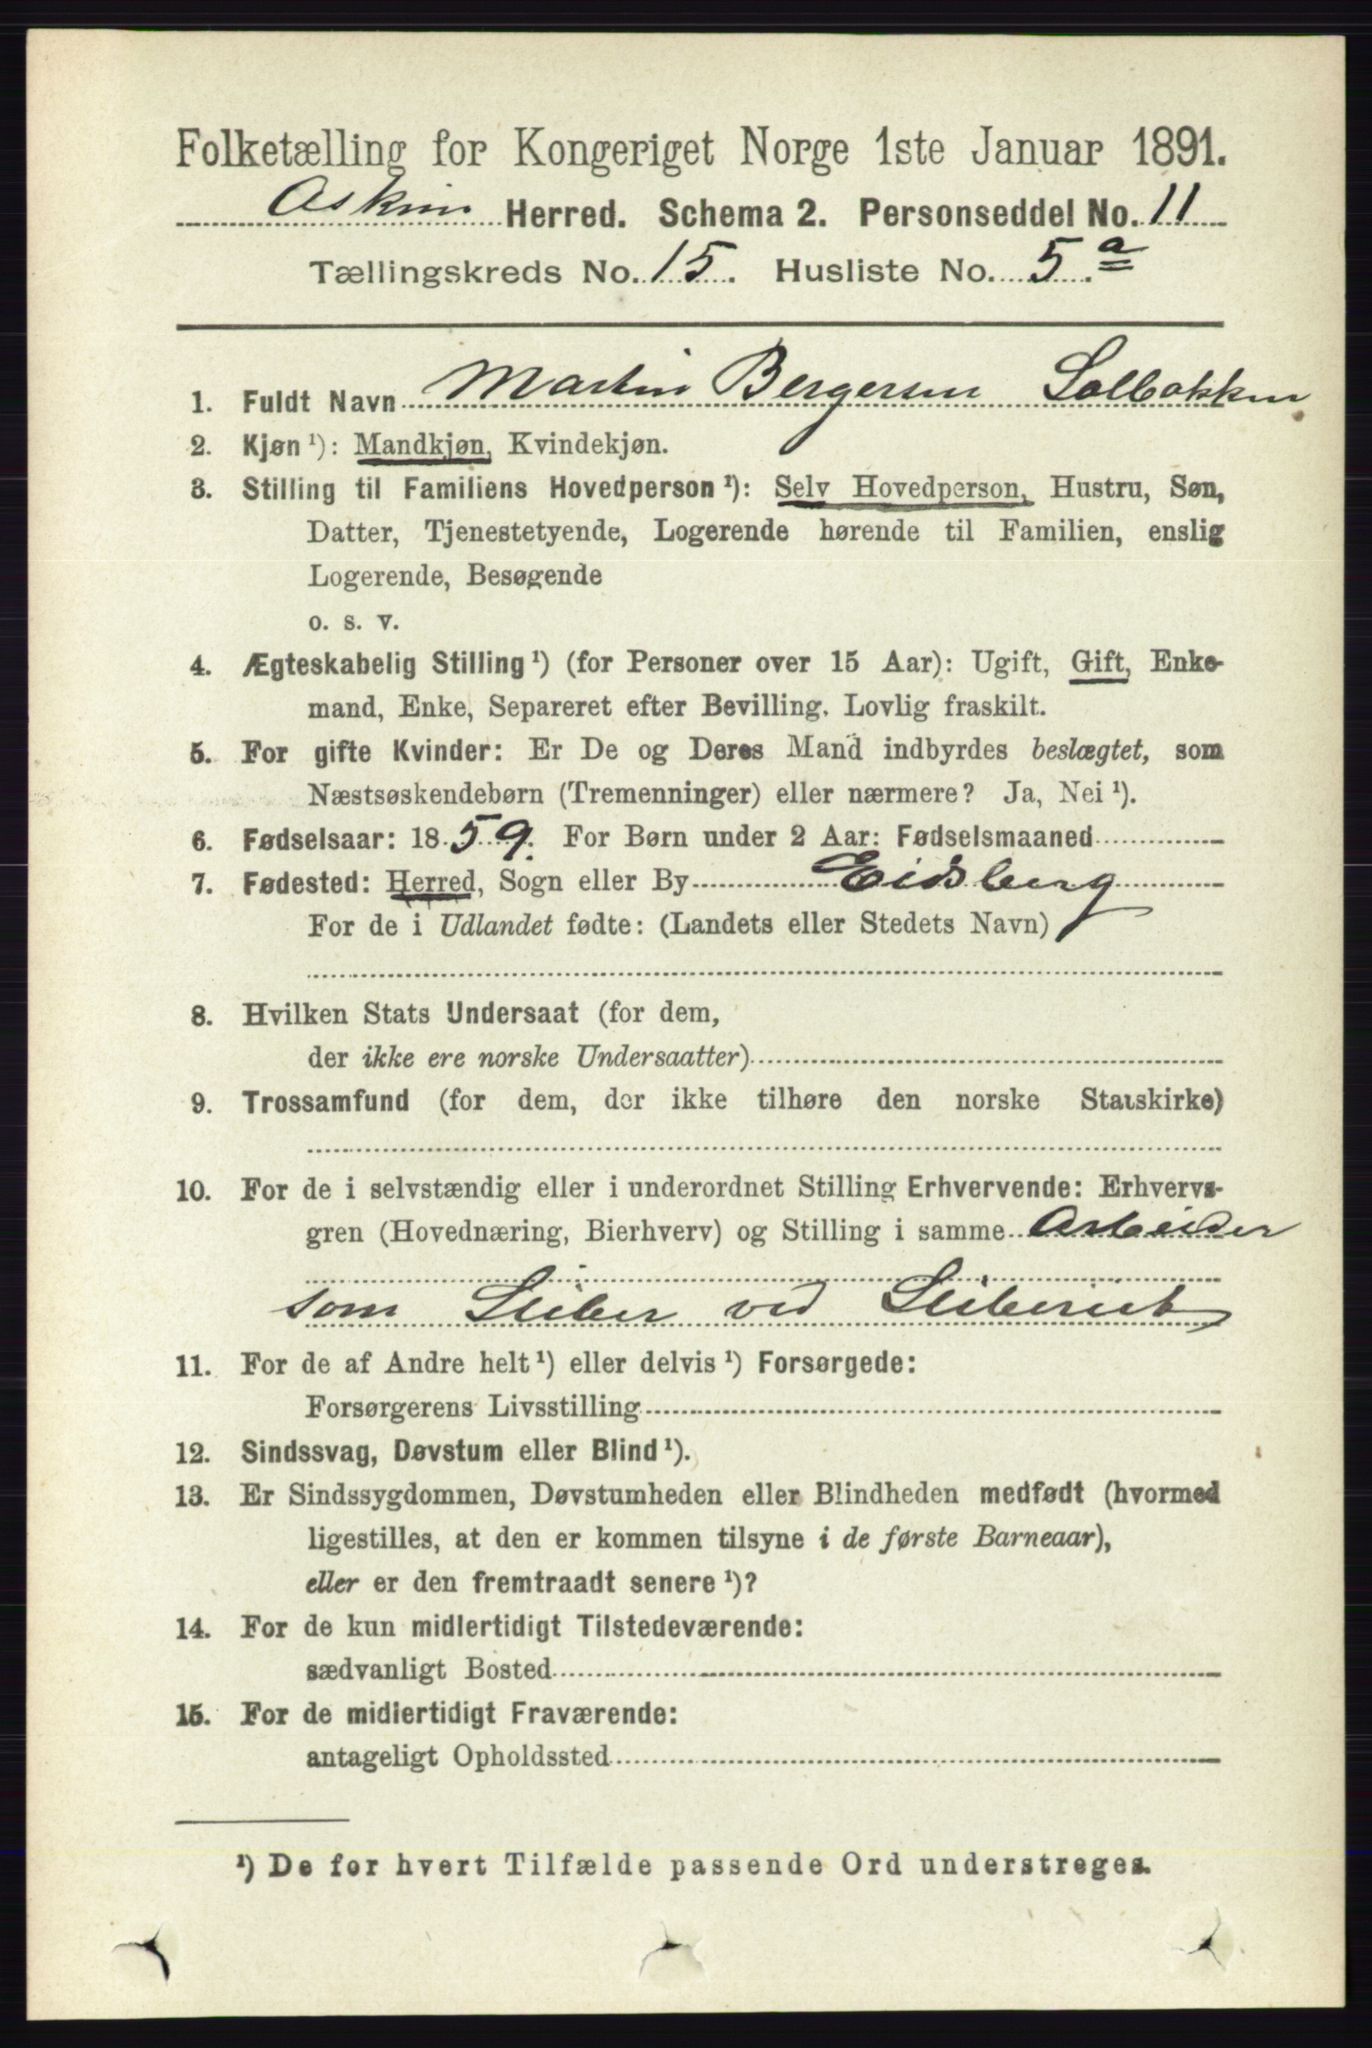 Folketælling for Kongeriget Norge 1ste Januar 1891.
Askim Herred. Schema 2. Personseddel No. 11
Tællingskreds No. 15. Husliste No. 5.a
1. Fuldt Navn Martin Bergersen Solbakken
2. Kjøn¹): Mandkjøn, Kvindekjøn.
3. Stilling til Familiens Hovedperson¹): Selv Hovedperson, Hustru, Søn,
Datter, Tjenestetyende, Logerende hørende til Familien, enslig
Logerende, Besøgende
o. s. v.
4. Ægteskabelig Stilling¹) (for Personer over 15 Aar): Ugift, Gift, Enke-
mand, Enke, Separeret efter Bevilling. Lovlig fraskilt.
5. For gifte Kvinder: Er De og Deres Mand indbyrdes beslægtet, som
Næstsøskendebørn (Tremenninger) eller nærmere? Ja, Nei¹).
6. Fødselsaar: 1859. For Børn under 2 Aar: Fødselsmaaned
7. Fødested: Herred, Sogn eller By Eidsberg
For de i Udlandet fødte: (Landets eller Stedets Navn)
8. Hvilken Stats Undersaat (for dem,
der ikke ere norske Undersaatter)
9. Trossamfund (for dem, der ikke tilhøre den norske Statskirke)
10. For de i selvstændig eller i underordnet Stilling Erhvervende: Erhvervs-
gren (Hovednæring, Bierhverv) og Stilling i samme Arbeider
som Sliber vid Sliberiet
11. For de af Andre helt¹) eller delvis¹) Forsørgede:
Forsørgerens Livsstilling
12. Sindssvag, Døvstum eller Blind¹).
13. Er Sindssygdommen, Døvstumheden eller Blindheden medfødt (hvormed
ligestilles, at den er kommen tilsyne i de første Barneaar),
eller er den fremtraadt senere¹)?
14. For de kun midlertidigt Tilstedeværende:
sædvanligt Bosted
15. For de midlertidigt Fraværende:
antageligt Opholdssted
¹) De for hvert Tilfælde passende Ord understreges.